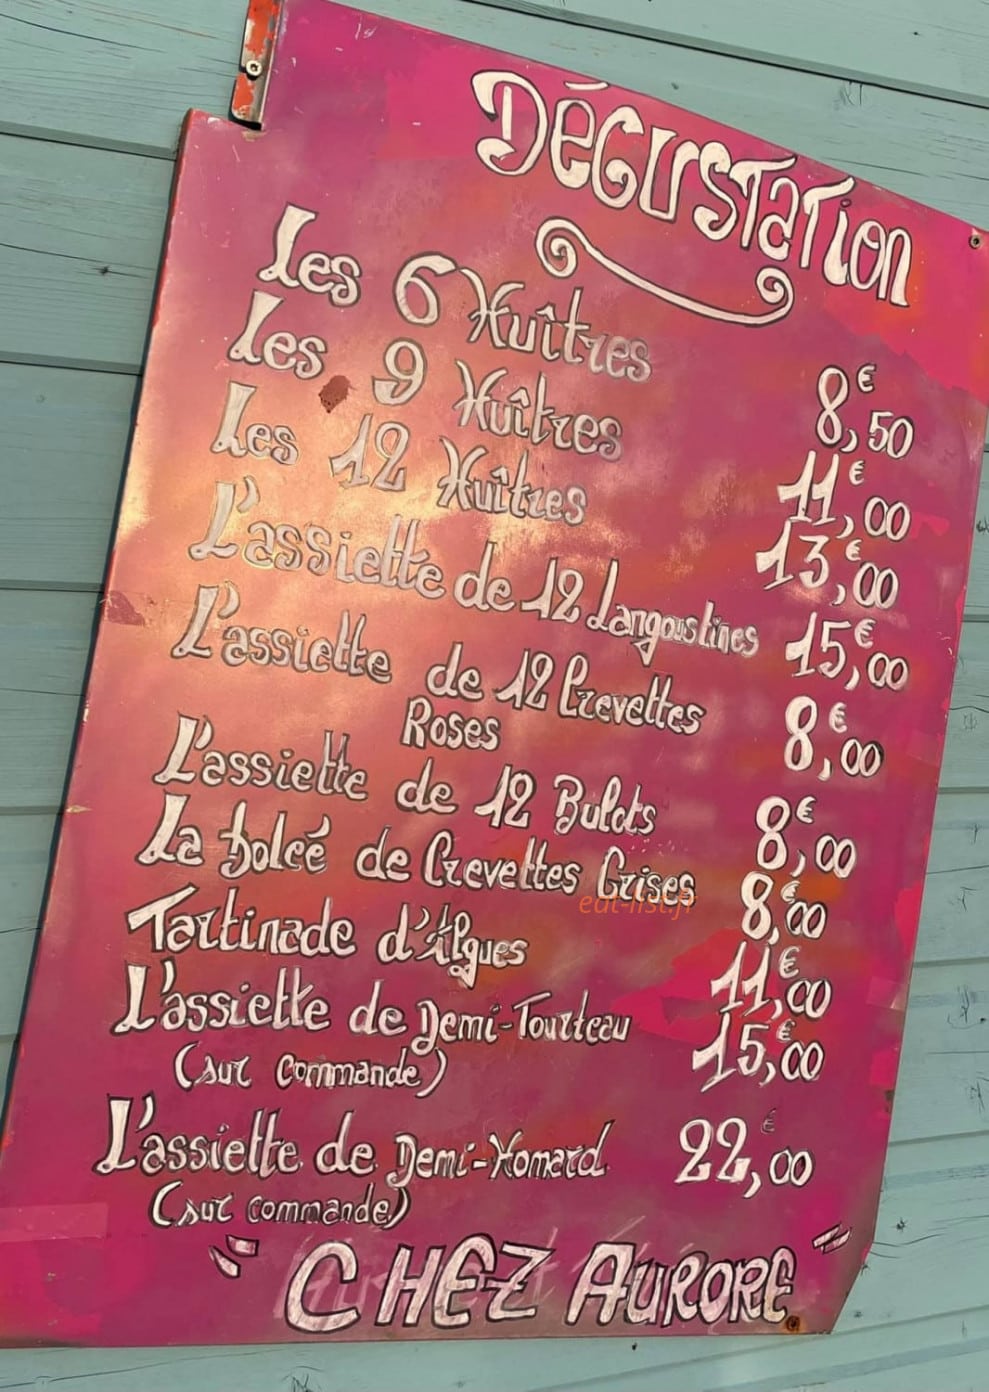 DéGUSTaTion
Les 6 Huîtres 8€,50
Les 9 Huîtres 11€,00
Les 12 Huîtres 13€,00
L'assiette de 12 Langoustines 15€,00
L'assiette de 12 Crevettes 8€,00
Roses
L'assiette de 12 Bulots 8€,00
La bolée de Crevettes Grises 8€,00
eat-list.fr
Tartinade d'Algues 11€,00
L'assiette de Demi-Tourteau 15€,00
(sur commande)
L'assiette de Demi-Homard 22€,00
(sur commande)
"CHEZ AURORE"